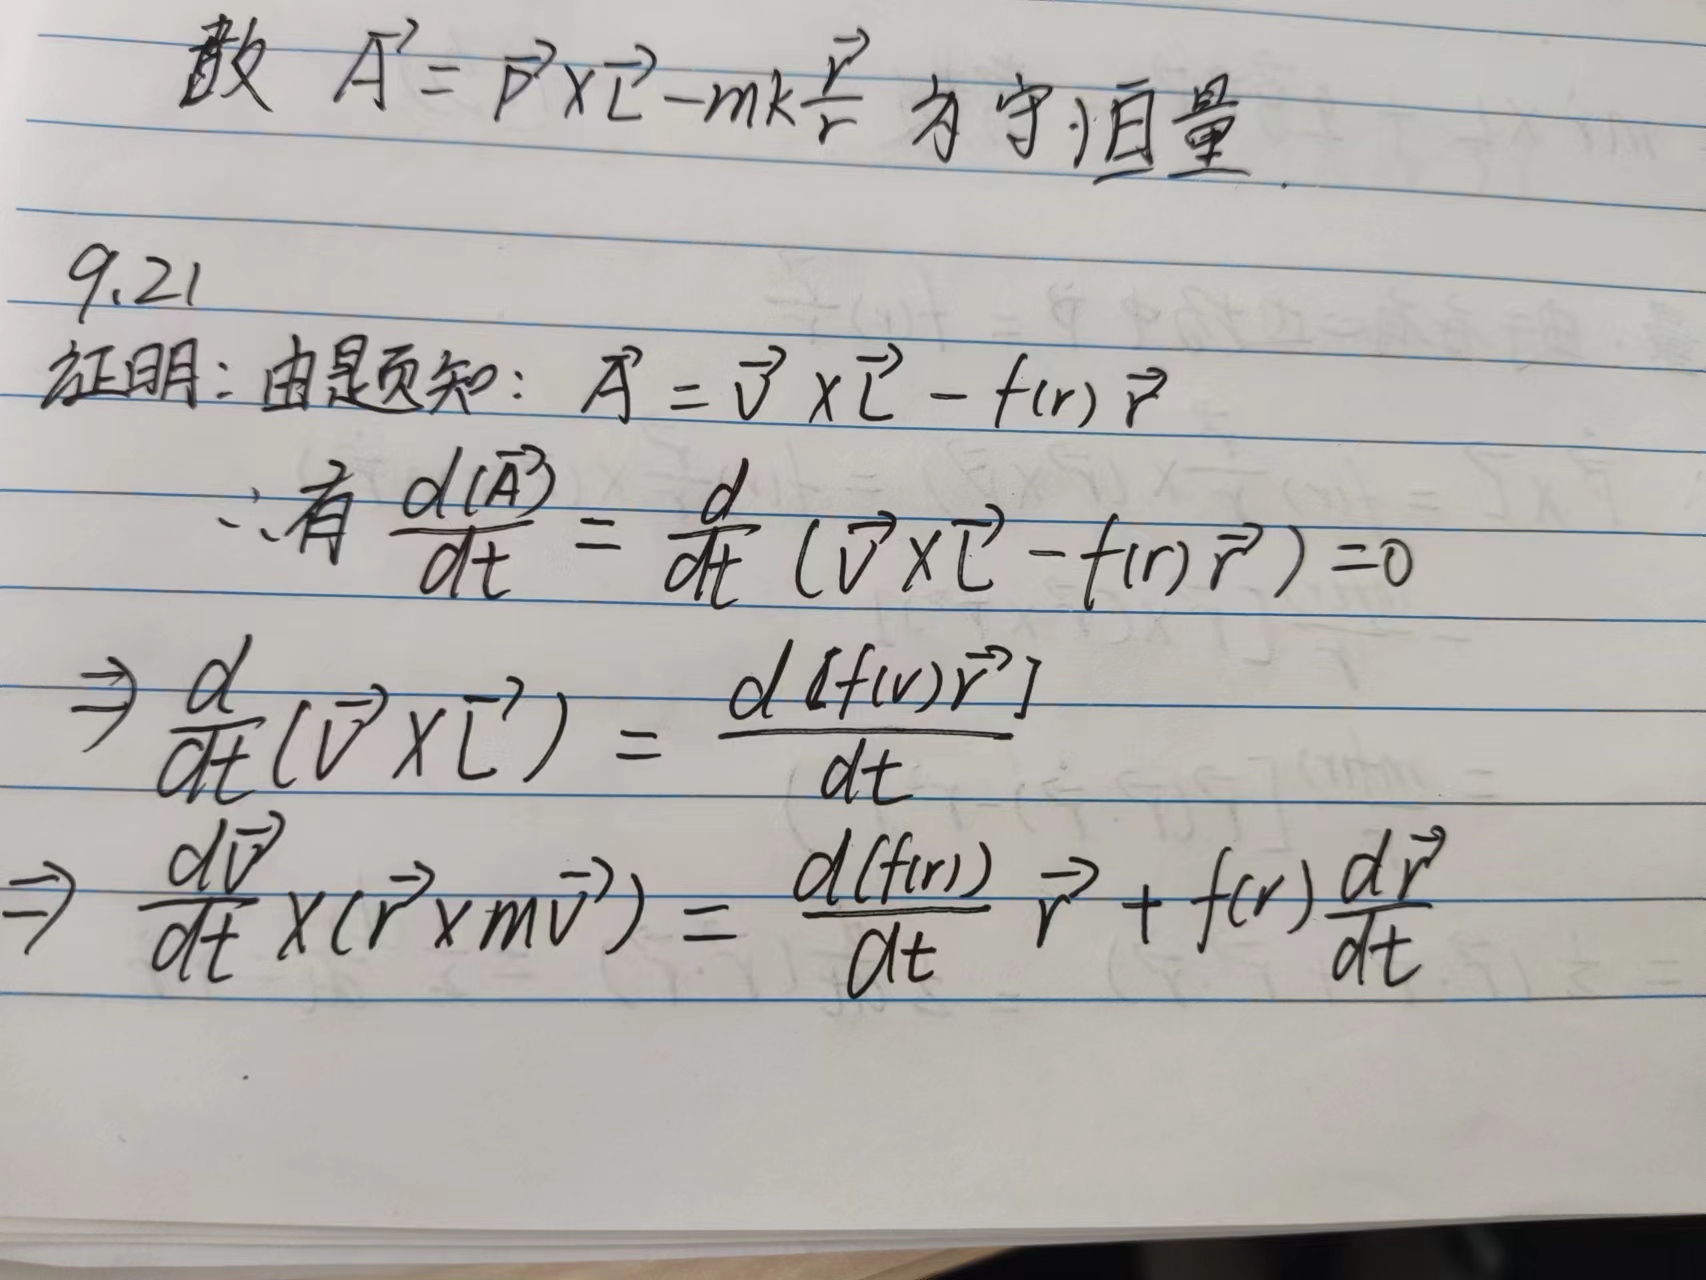 故 A⃗ = P⃗ × L⃗ - mk r⃗/r 为守恒量.
9.21
证明: 由题知: A⃗ = v⃗ × L⃗ - f(r) r⃗
∴有 d(A⃗)/dt = d/dt (v⃗ × L⃗ - f(r) r⃗) = 0
⇒ d/dt (v⃗ × L⃗) = d[f(r) r⃗]/dt
⇒ dv⃗/dt × (r⃗ × mv⃗) = d(f(r))/dt r⃗ + f(r) dr⃗/dt